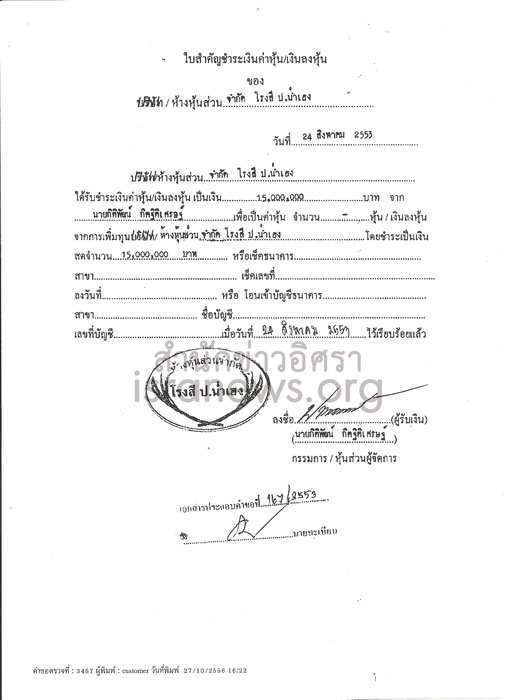 ใบสำคัญชำระเงินค่าหุ้น/เงินลงหุ้น
ของ
บริษัท / ห้างหุ้นส่วน จำกัด โรงสี ป.น่ำเฮง
วันที่ 24 สิงหาคม 2553
บริษัท/ห้างหุ้นส่วน จำกัด โรงสี ป.น่ำเฮง
ได้รับชำระเงินค่าหุ้น/เงินลงหุ้น เป็นเงิน 15,000,000 บาท จาก
นายกิติพัฒน์ กิตฐิติเศรษฐ์ เพื่อเป็นค่าหุ้น จำนวน - หุ้น / เงินลงหุ้น
จากการเพิ่มทุนบริษัท/ ห้างหุ้นส่วน จำกัด โรงสี ป.น่ำเฮง โดยชำระเป็นเงิน
สดจำนวน 15,000,000 บาท หรือเช็คธนาคาร
สาขา เช็คเลขที่
ลงวันที่ หรือ โอนเข้าบัญชีธนาคาร
สาขา ชื่อบัญชี
เลขที่บัญชี เมื่อวันที่ 24 สิงหาคม 2553 ไว้เรียบร้อยแล้ว
สำนักข่าวอิศรา
isranews.org
ห้างหุ้นส่วนจำกัด
โรงสี ป.น่ำเฮง
ลงชื่อ (ผู้รับเงิน)
(นายกิติพัฒน์ กิตฐิติเศรษฐ์)
กรรมการ / หุ้นส่วนผู้จัดการ
เอกสารประกอบคำขอที่ 167/2553
นายทะเบียน
คำขอตรวจที่ : 3457 ผู้พิมพ์ : customer วันที่พิมพ์ 27/10/2558 16:22